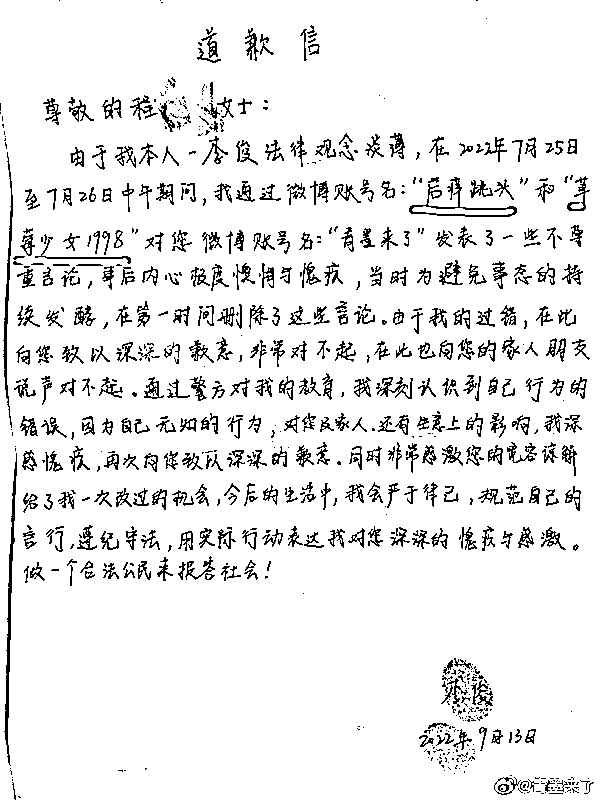 道歉信
尊敬的程 女士：
由于我本人-李俊法律观念淡薄，在2022年7月25日
至7月26日中午期间，我通过微博账号名："后 跳头"和"草
莓少女1998"对您微博账号名："青墨来了"发表了一些不尊
重言论，事后内心极度懊悔与愧疚，当时为避免事态的持
续发酵，在第一时间删除了这些言论。由于我的过错，在此
向您致以深深的歉意，非常对不起，在此也向您的家人朋友
说声对不起。通过警方对我的教育，我深刻认识到自己行为的
错误，因为自己无知的行为，对您及家人.还有生意上的影响，我深
感愧疚，再次向您致以深深的歉意。同时非常感激您的宽容谅解
给了我一次改过的机会，今后的生活中，我会严于律己，规范自己的
言行，遵纪守法，用实际行动表达我对您深深的愧疚与感激。
做一个合法公民来报答社会！
李俊
2022年9月13日
@青墨来了